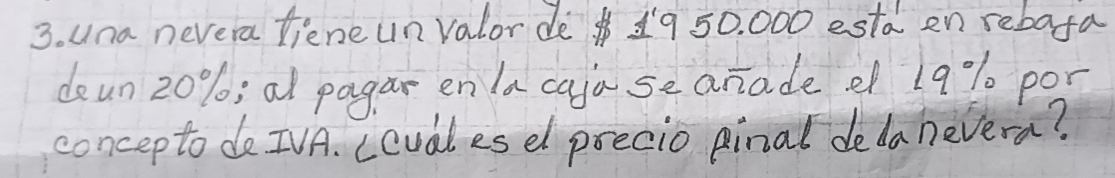 3. una nevera tiene un valor de $ 1'950.000 está en rebaja
de un 20%; al pagar en la caja se añade el 19% por
concepto de IVA. ¿Cuál es el precio final de la nevera?